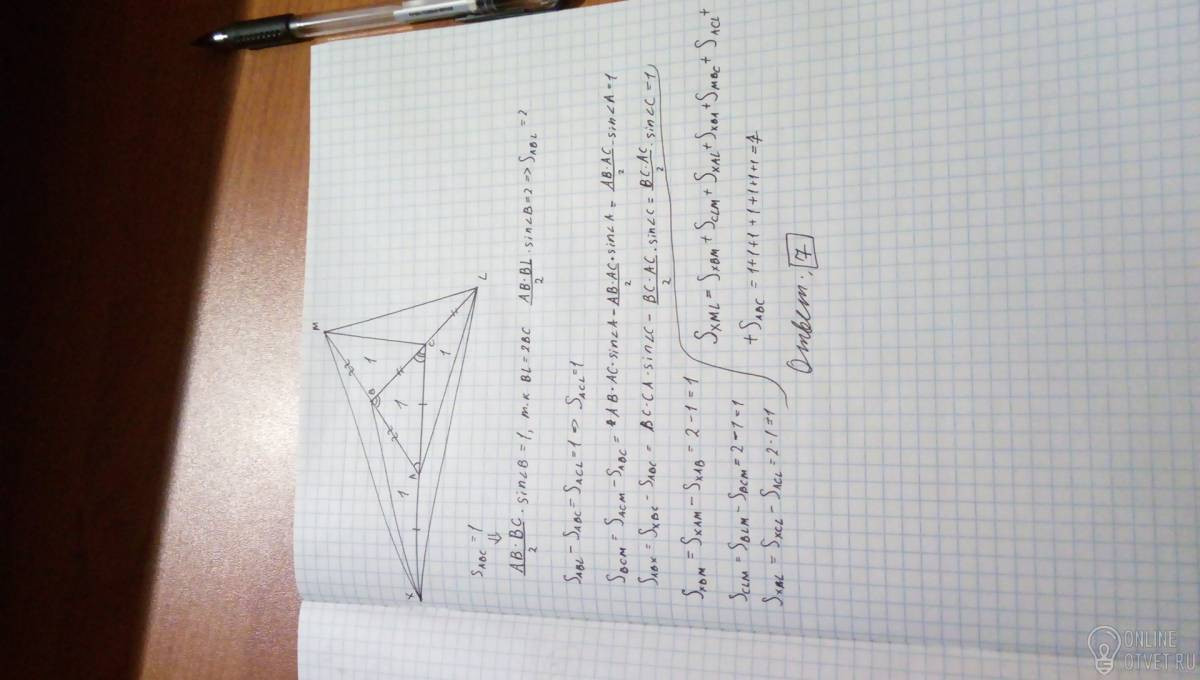 M
B
C
A
X
L
1
1
1
1
S_ABC = 1
⇓
AB·BC/2 · sin∠B = 1, т.к BL = 2BC AB·BL/2 · sin∠B = 2 => S_ABL = 2
S_ABL − S_ABC = S_ACL = 1 => S_ACL = 1
S_BCM = S_ACM − S_ABC = AB·AC·sin∠A − AB·AC/2 · sin∠A = AB·AC/2 · sin∠A = 1
S_ABX = S_XBC − S_ABC = BC·CA·sin∠C − BC·AC/2 · sin∠C = BC·AC/2 · sin∠C = 1
S_XBM = S_XAM − S_XAB = 2 − 1 = 1
S_CLM = S_BLM − S_BCM = 2 − 1 = 1
S_XAL = S_XCL − S_ACL = 2 - 1 = 1
S_XML = S_XBM + S_CLM + S_XAL + S_XBA + S_MBC + S_ACL +
+ S_ABC = 1+1+1+1+1+1+1 = 7
Ответ: 7
ONLINE
OTVET.RU